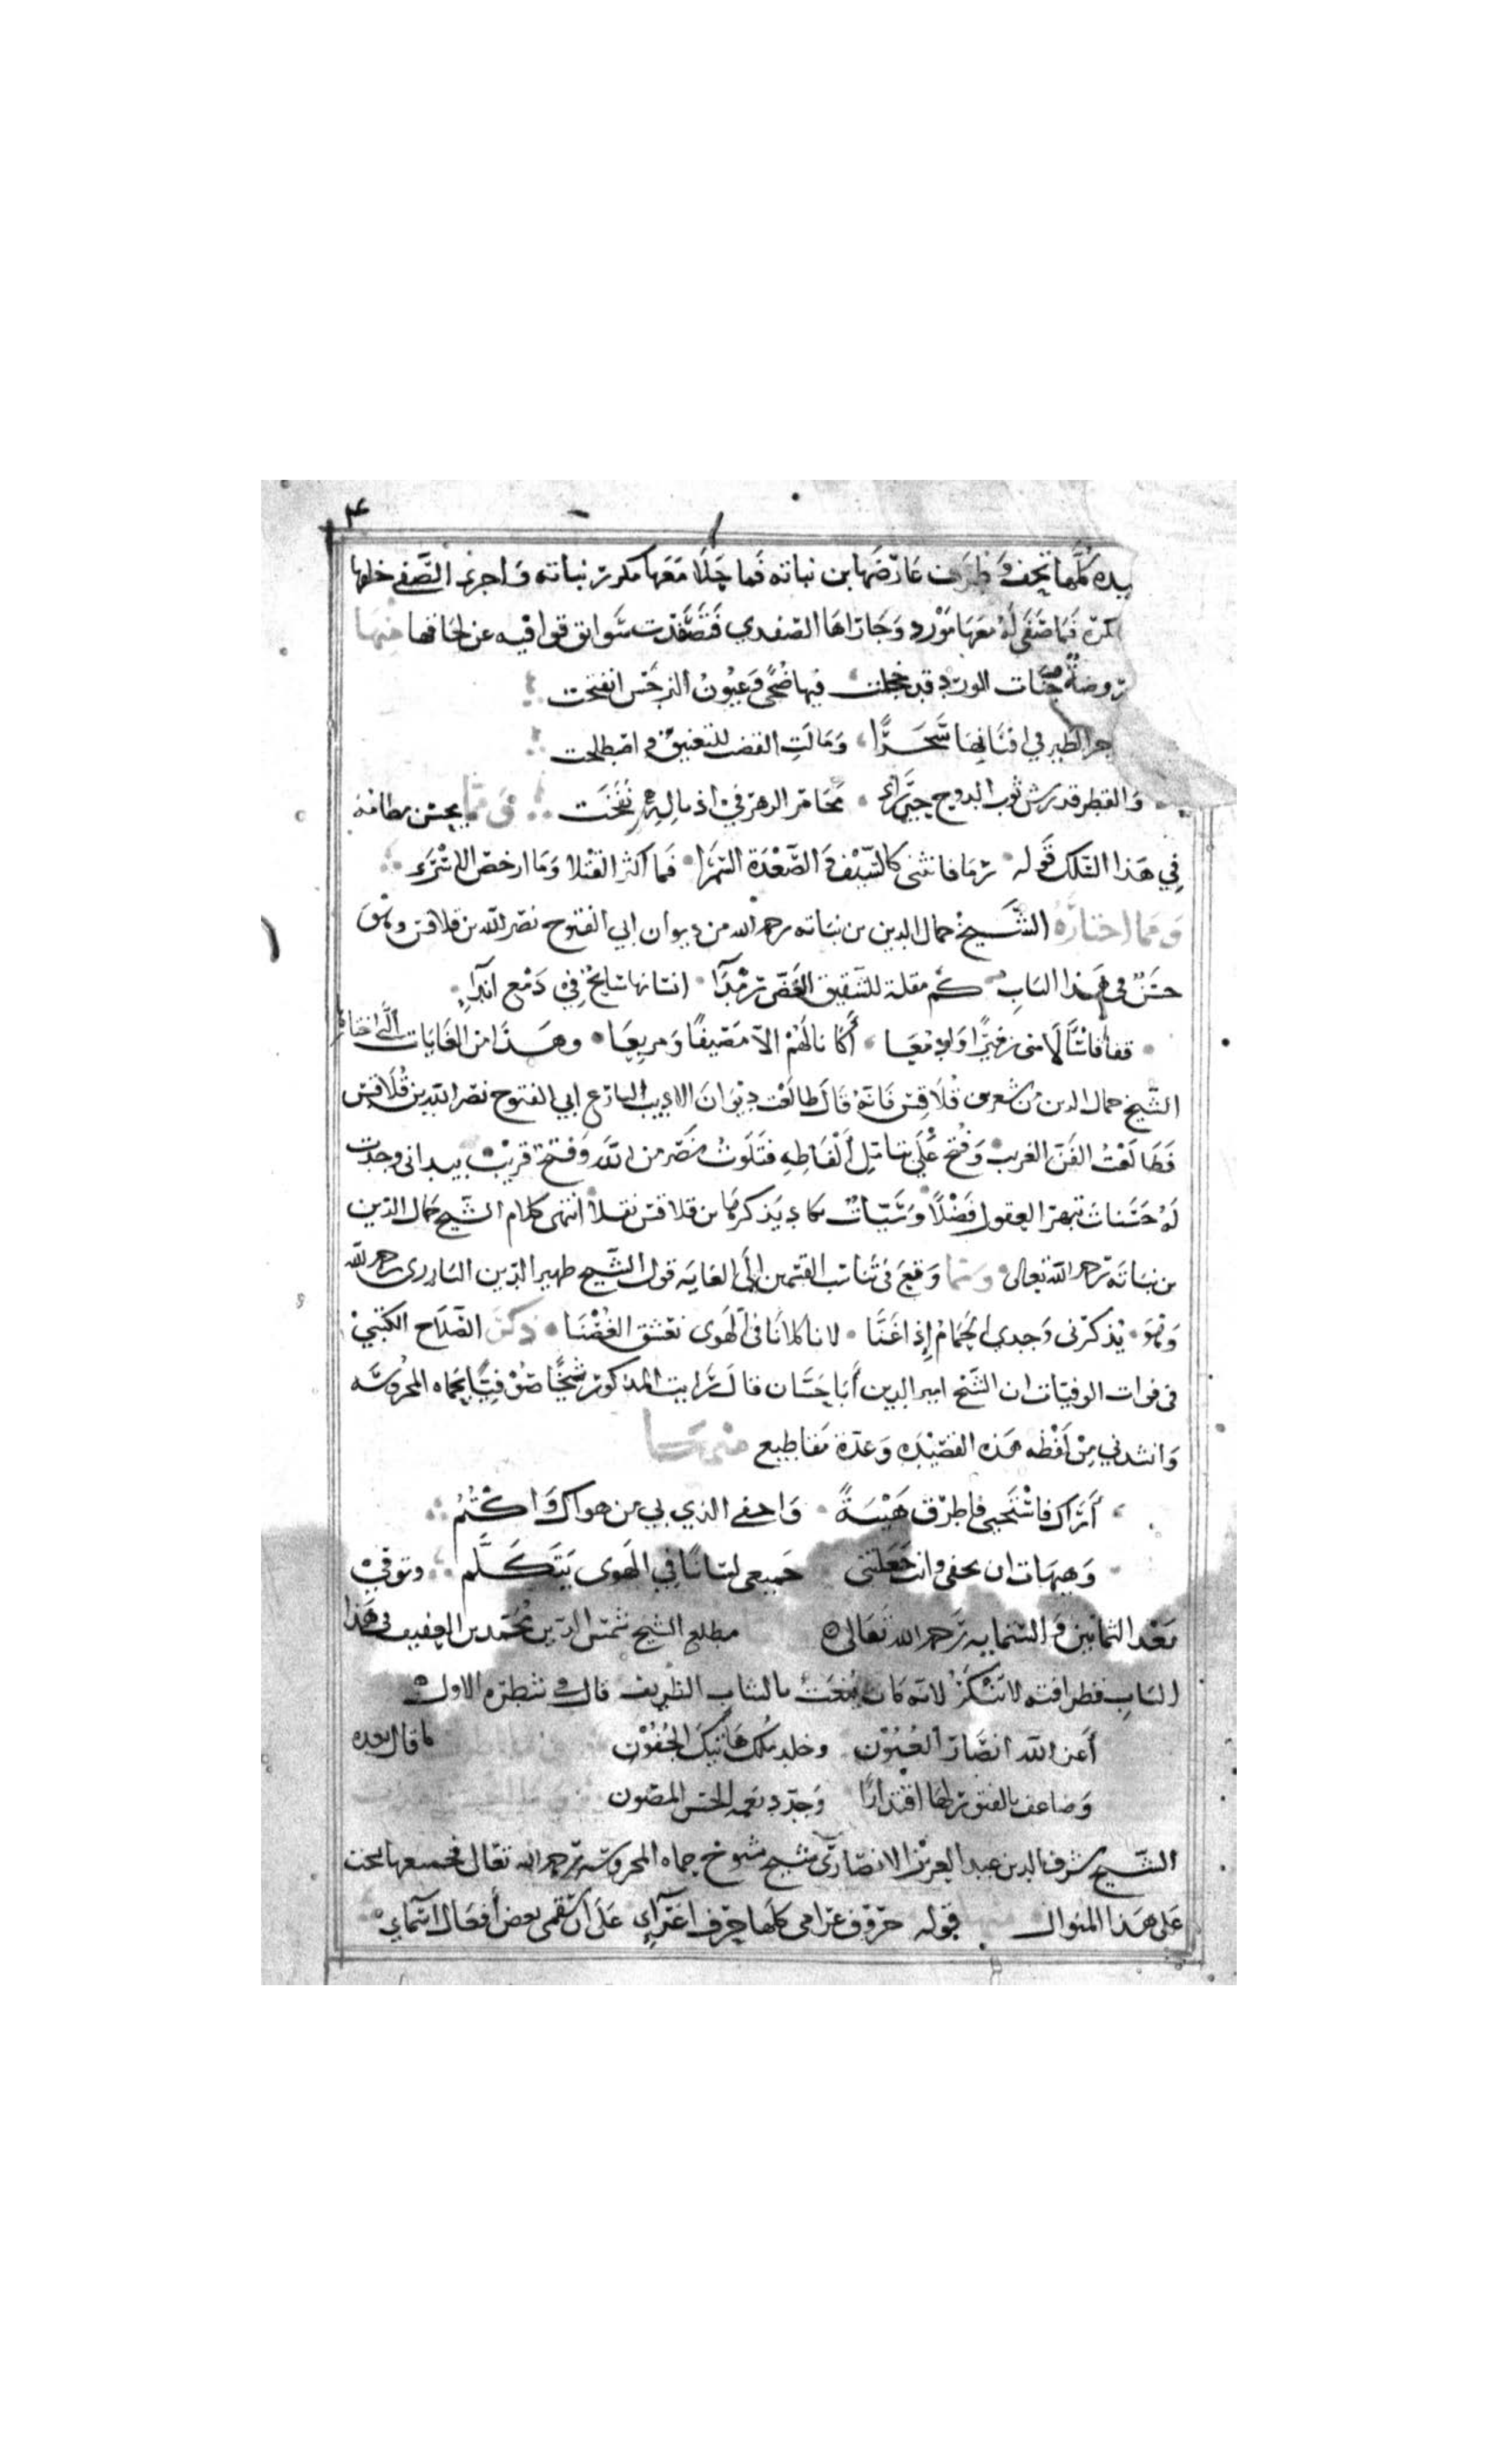 ٤
بيده كلها تحف وظرف عارضها ابن نباته فما حلا معها مكرر نباته واجرى الصفي خلفها
فكره فما صفى له معها مورد وجاراها الصفدي فتصفدت سوابق قوافيه عن لحاقها منها
روضة وجنات الورد قد خجلت فيها ضحى وعيون النرجس انفتحت
الطير في افنانها سحرا ومالت القضب للتعنيق واصطلحت
والقطر قد رش ثوب الدوح حين رأى مجامر الزهر في اذياله نفحت ومما يحسن نظامه
في هذا السلك قوله رنا فانثنى كالسيف والصعدة السمرا فما اكثر القتلا وما ارخص الاسرى
ومما اختاره الشيخ جمال الدين بن نباته رحمه الله من ديوان ابي الفتوح نصر الله بن قلاقس وهو
حسن في هذا الباب كم مقلة للشقيق الغض رمدا انسانها سابح في دمع انداء
قفا فاسألا مني زفيرا وادمعا أكانا لهم الا مصيفا ومربعا وهذا من الغايات التي اختارها
الشيخ جمال الدين من شعر بن قلاقس فانه قال طالعت ديوان الاديب البارع ابي الفتوح نصر الله بن قلاقس
فطالعت الفن الغريب وفتح علي بتأمل ألفاظه فتلوت نصر من الله وفتح قريب بيد اني وجدت
له حسنات تبهر العقول فضلا وسيآت يكاد يذكرها بن قلاقس نقلا انتهى كلام الشيخ جمال الدين
بن نباته رحمه الله تعالى ومما وقع في تناسب القسمين الى الغايه قول الشيخ ظهير الدين البارزي رحمه الله
وهو يذكرني وجدي الحمام إذا غنا لانا كلانا في الهوى نعشق الغصنا ذكر الصلاح الكتبي
في فوات الوفيات ان الشيخ اثير الدين أبا حيان قال رايت المذكور شيخا صوفيا بحماه المحروسه
وانشدني من لفظه هذه القصيده وعدة مقاطيع منها
أراك فاستحيي فاطرق هيبة واخفي الذي بي من هواك واكتم
وهيهات ان يخفى وانت جعلتني جميعي لسانا في الهوى يتكلم وتوفي
بعد الثمانين والستمايه رحمه الله تعالى مطلع الشيخ شمس الدين محمد بن العفيف في هذا
الباب فظرافته لا تنكر لانه كان ينعت بالشاب الظريف قال في شطره الاول
أعز الله انصار العيون وخلد ملك هاتيك الجفون ما قال بعده
وضاعف بالفتور لها اقتدارا وجدد نعمه الحسن المصون
الشيخ شرف الدين عبد العزيز الانصاري شيخ شيوخ حماه المحروسه رحمه الله تعالى فجميعها تحت
على هذا المنوال قوله حروف غرامي كلها حرف اغراي على ان سقمي بعض أفعال اسماي